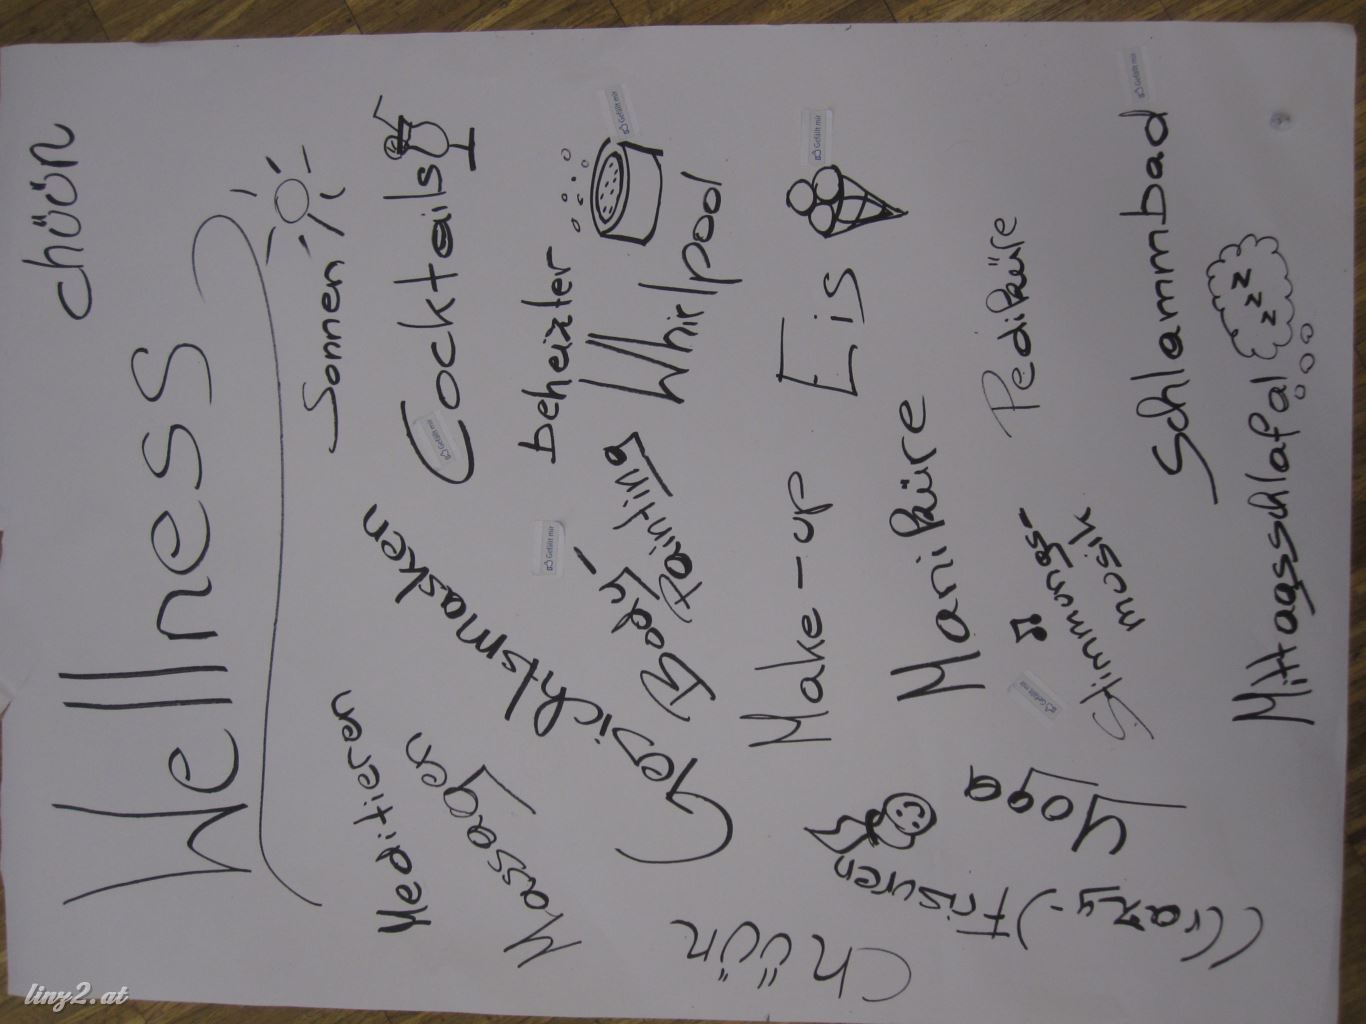 chüün
Wellness
Sonnen
Meditieren
Cocktails
Gefällt mir
Massagen
Gesichtsmasken
beheizter
Whirlpool
Gefällt mir
Gefällt mir
Body-
Painting
Make-up
Eis
Gefällt mir
chüün
Maniküre
Pediküre
(Crazy-)Frisuren
Yoga
Stimmungs-
musik
Gefällt mir
Schlammbad
Gefällt mir
Mittagsschlafal
zzz
linz2.at